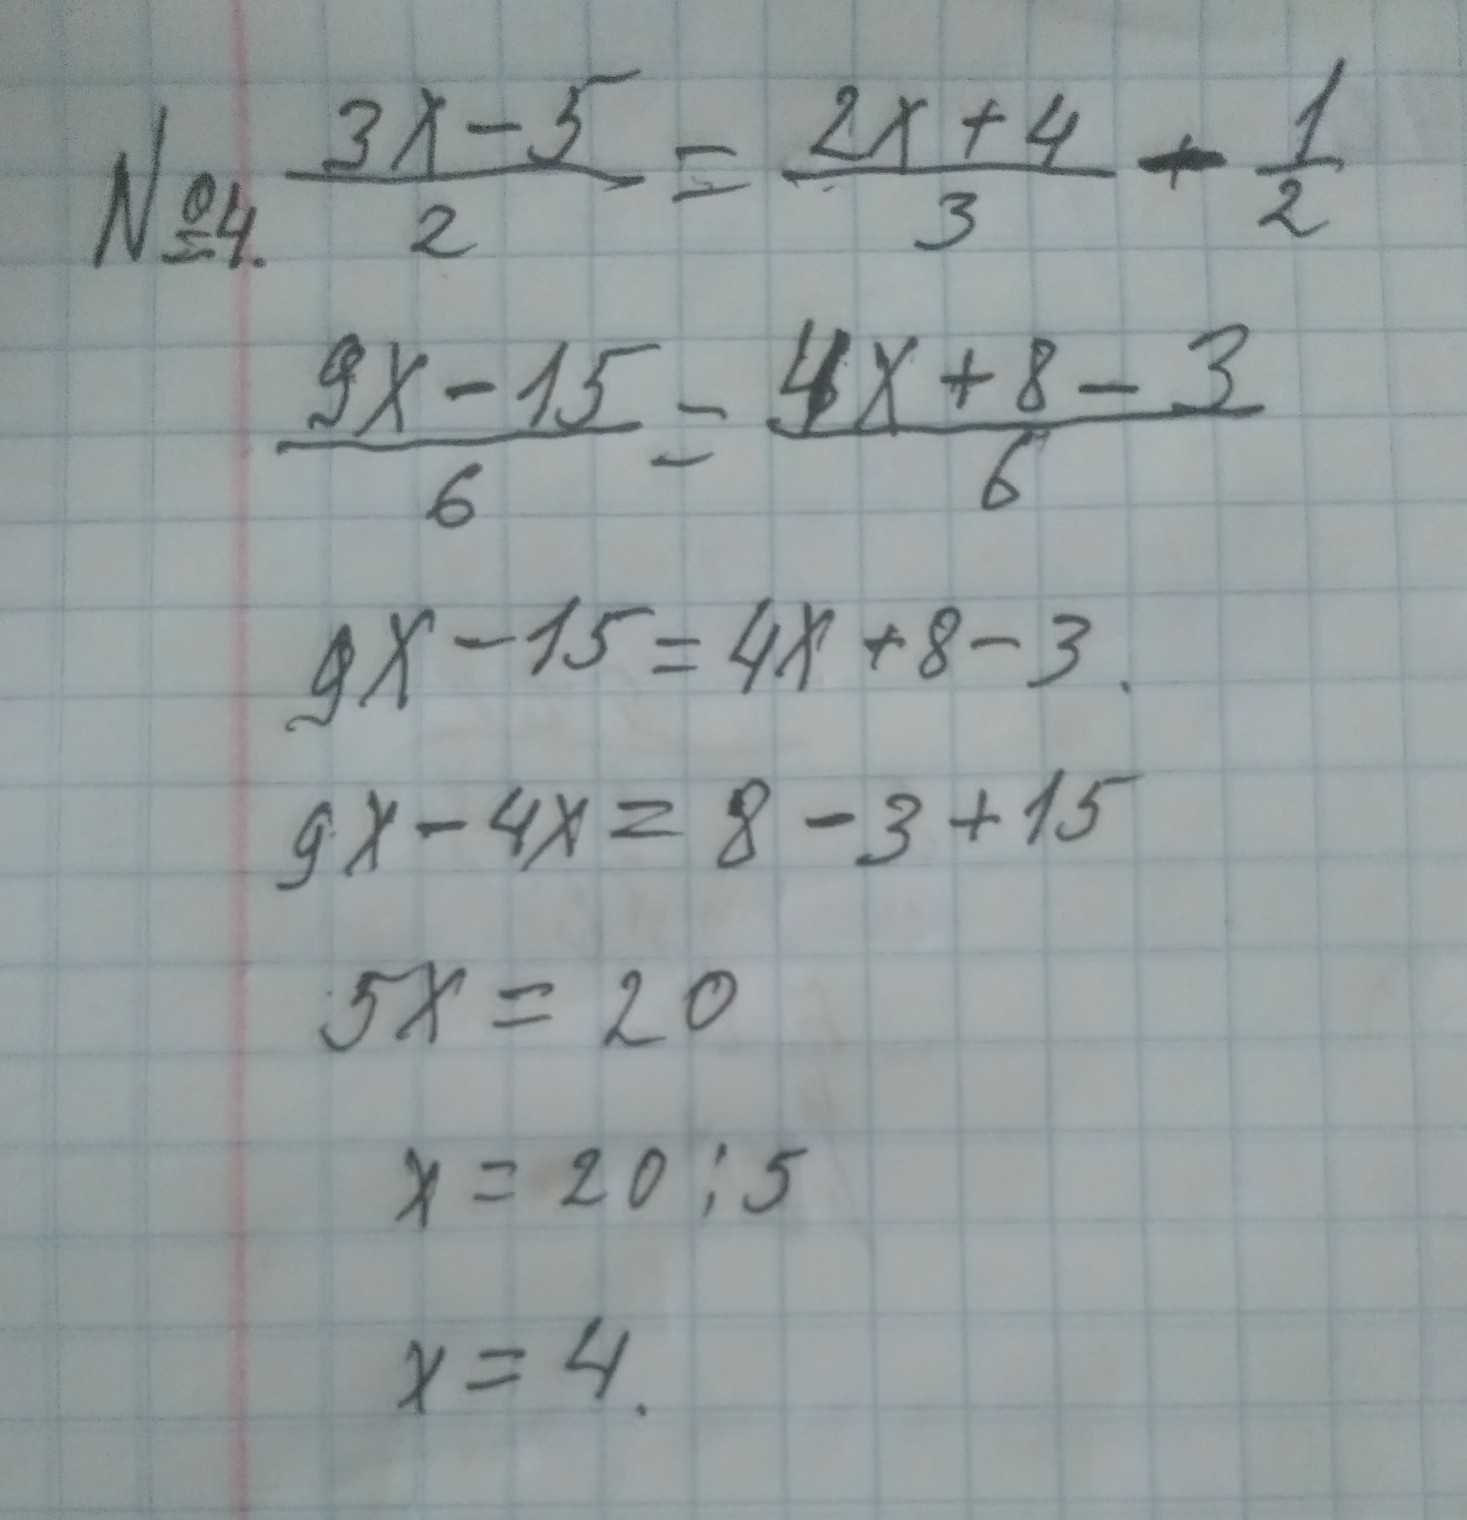 №4. (3x-5)/2 = (2x+4)/3 - 1/2
(9x-15)/6 = (4x+8-3)/6
9x-15=4x+8-3.
9x-4x=8-3+15
5x=20
x=20:5
x=4.